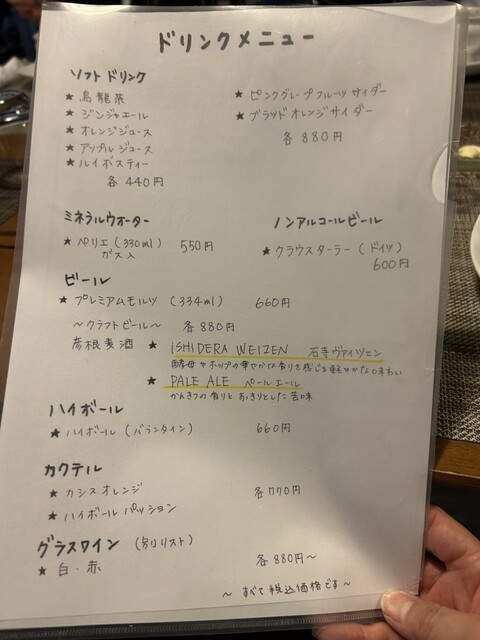 ドリンクメニュー
ソフトドリンク
★ 烏龍茶
★ ジンジャエール
★ オレンジジュース
★ アップルジュース
★ ルイボスティー
各 440円
★ ピンクグレープフルーツサイダー
★ ブラッドオレンジサイダー
各 880円
ミネラルウォーター
★ ペリエ (330ml) 550円
ガス入
ノンアルコールビール
★ クラウスターラー (ドイツ)
600円
ビール
★ プレミアムモルツ (334ml) 660円
〜クラフトビール〜 各880円
彦根麦酒 ★ ISHIDERA WEIZEN 石寺ヴァイツェン
酵母やホップの華やかな香りを感じる軽やかな味わい
★ PALE ALE ペールエール
かんきつの香りとすっきりとした苦味
ハイボール
★ ハイボール (バランタイン) 660円
カクテル
★ カシスオレンジ 各770円
★ ハイボールパッション
グラスワイン (別リスト)
★ 白・赤 各880円〜
〜 すべて税込価格です 〜